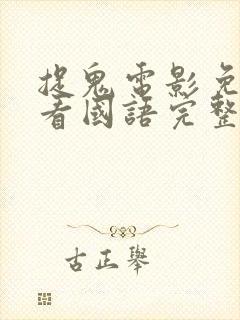 捉鬼電影免
看國語完整
古正舉